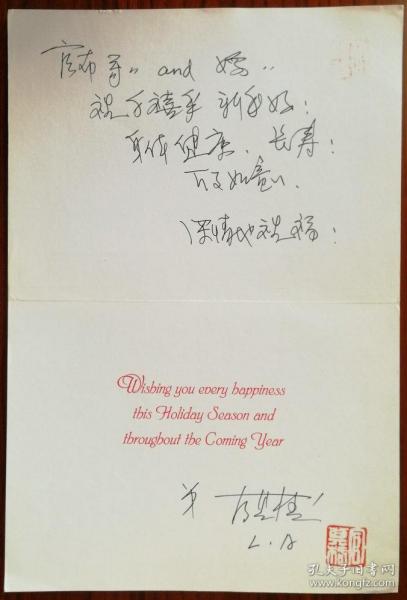 官布哥 and 嫂
祝千禧年新年好！
身体健康、长寿！
万事如意！
深情地祝福！
Wishing you every happiness
this Holiday Season and
throughout the Coming Year
弟
L.A
孔夫子旧书网
www.kongfz.com